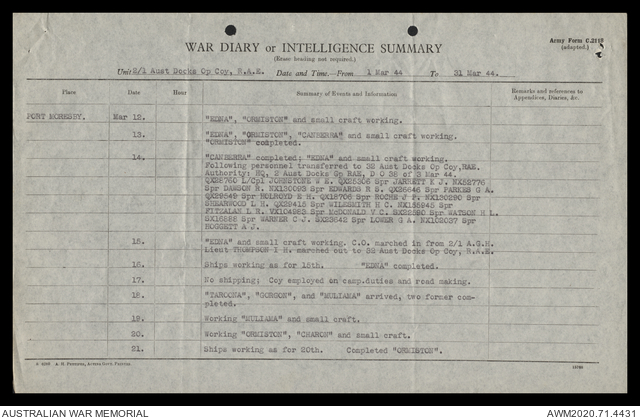 Army Form C.2118
(adapted.)
WAR DIARY or INTELLIGENCE SUMMARY
(Erase heading not required.)
Unit 2/1 Aust Docks Op Coy, R.A.E. Date and Time.—From 1 Mar 44 To 31 Mar 44.
Place Date Hour Summary of Events and Information Remarks and references to
Appendices, Diaries, &c.
PORT MORESBY. Mar 12. "EDNA", "ORMISTON" and small craft working.
13. "EDNA", "ORMISTON", "CANBERRA" and small craft working.
"ORMISTON" completed.
14. "CANBERRA" completed; "EDNA" and small craft working.
Following personnel transferred to 32 Aust Docks Op Coy, RAE.
Authority: HQ, 2 Aust Docks Op RAE, D O 38 of 3 Mar 44.
L/Cpl JOHNSTONE W E. QX25306 Spr JARRETT K J. NX52776
Spr DAWSON R. NX130093 Spr EDWARDS R S. QX26646 Spr PARKES G A.
QX29549 Spr HOLROYD E H. QX18706 Spr ROCHE J P. NX130290 Spr
SHEARWOOD L H. QX29415 Spr WILESMITH H C. NX155945 Spr
FITZALAN L R. VX104983 Spr McDONALD V C. SX22590 Spr WATSON H L.
SX16888 Spr WARNER C J. SX23642 Spr LOWER G A. NX102037 Spr
HOGGETT A J.
15. "EDNA" and small craft working. C.O. marched in from 2/1 A.G.H.
Lieut THOMPSON I H. marched out to 32 Aust Docks Op Coy, R.A.E.
16. Ships working as for 15th. "EDNA" completed.
17. No shipping; Coy employed on camp.duties and road making.
18. "TAROONA", "GORGON", and "MULIAMA" arrived, two former com-
pleted.
19. Working "MULIAMA" and small craft.
20. Working "ORMISTON", "CHARON" and small craft.
21. Ships working as for 20th. Completed "ORMISTON".
AUSTRALIAN WAR MEMORIAL
AWM2020.71.4431